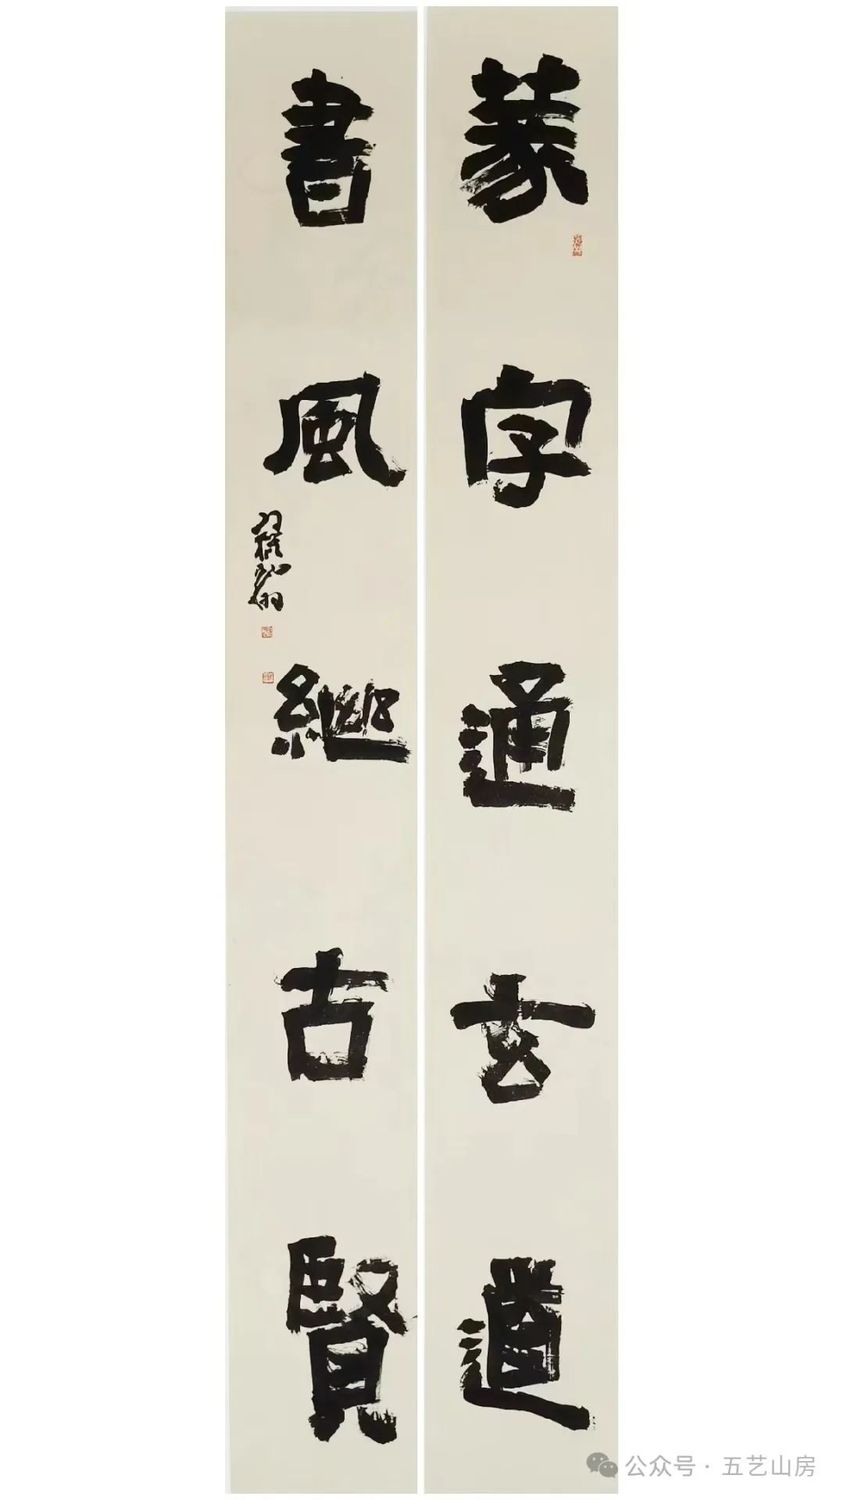 篆字通玄道
書風繼古賢
公众号 · 五艺山房